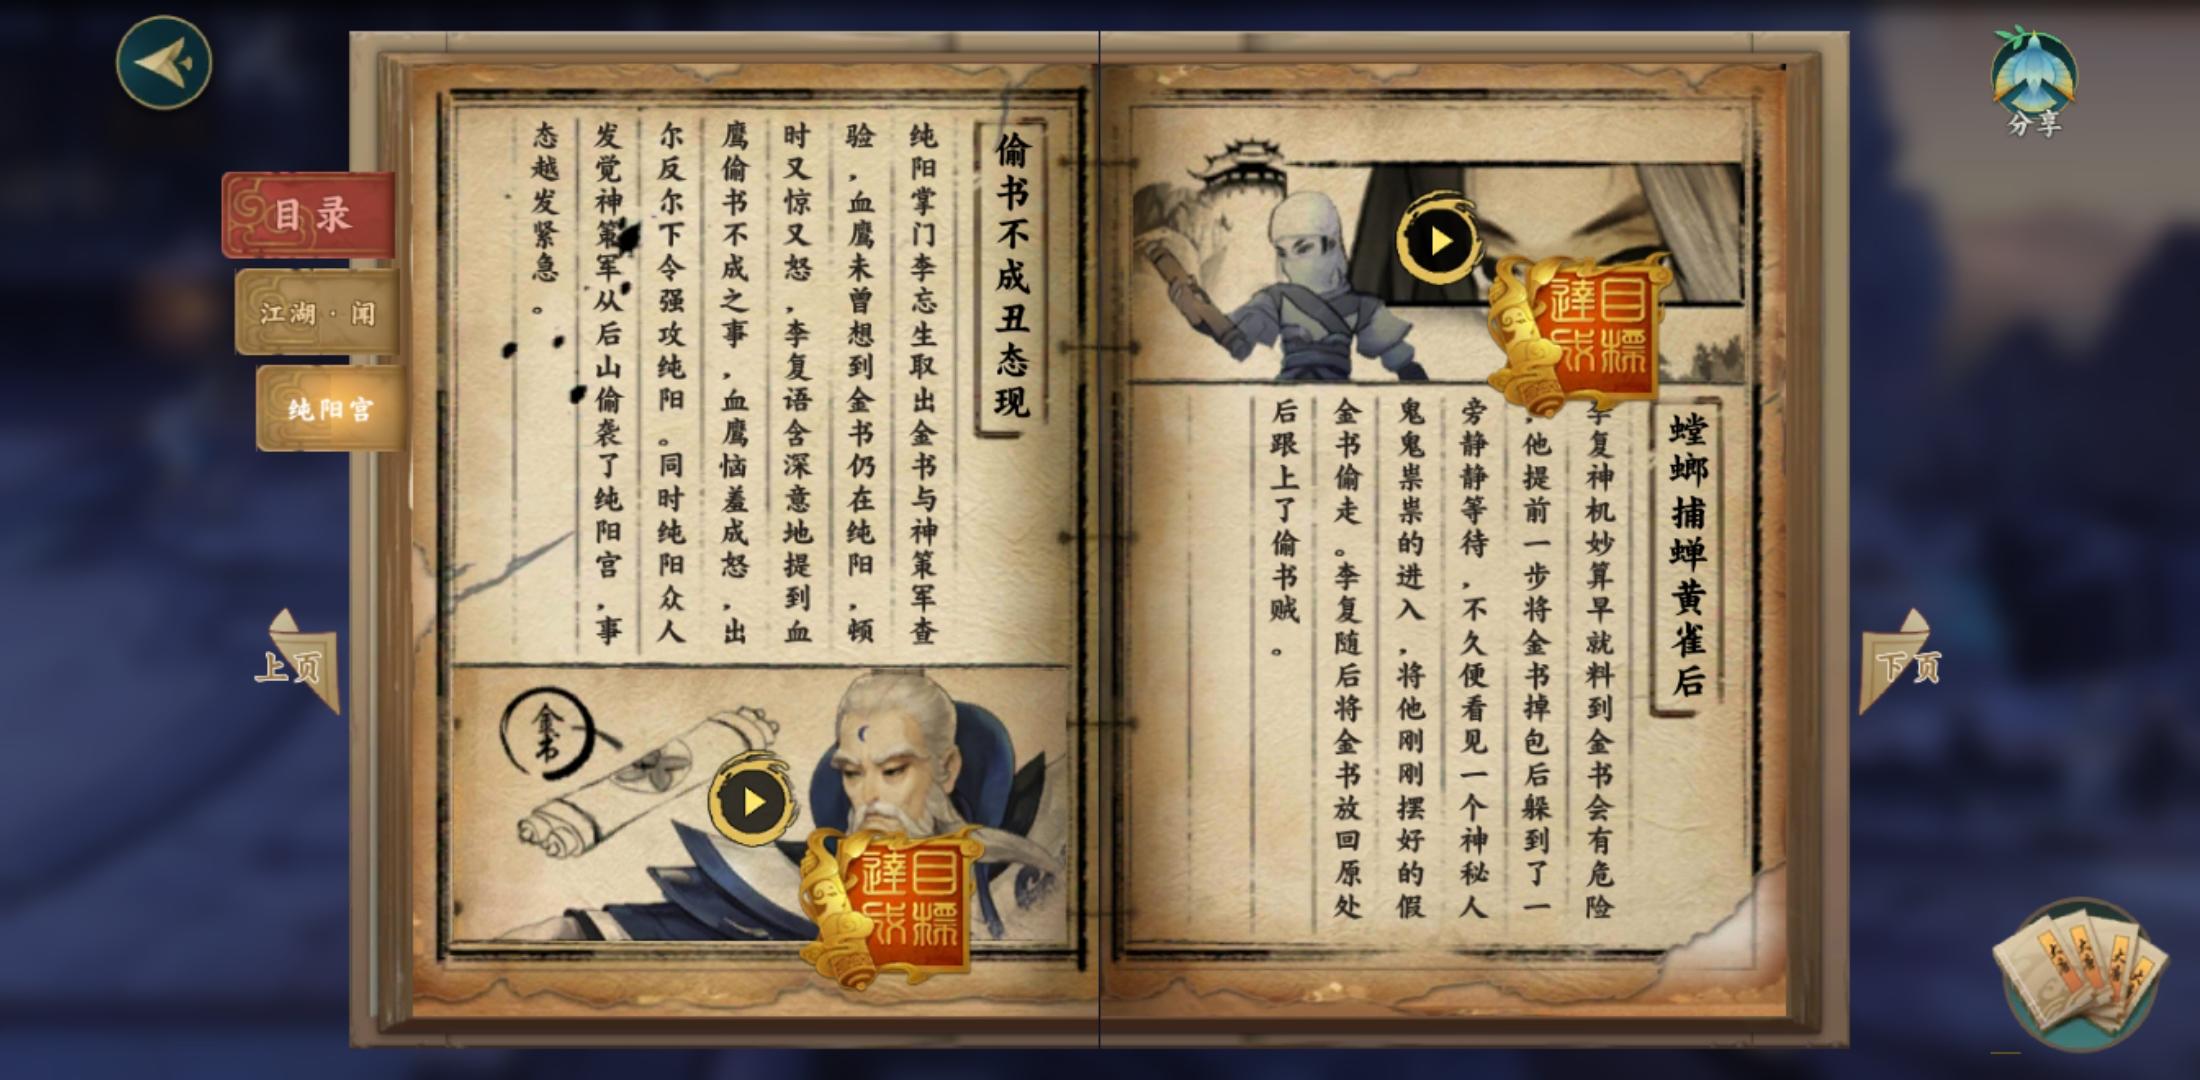 分享
目录
江湖·闻
纯阳宫
上页
下页
螳螂捕蝉黄雀后
李复神机妙算早就料到金书会有危险
，他提前一步将金书掉包后躲到了一
旁静静等待，不久便看见一个神秘人
鬼鬼祟祟的进入，将他刚刚摆好的假
金书偷走。李复随后将金书放回原处
后跟上了偷书贼。
目标
達成
偷书不成丑态现
纯阳掌门李忘生取出金书与神策军查
验，血鹰未曾想到金书仍在纯阳，顿
时又惊又怒，李复语含深意地提到血
鹰偷书不成之事，血鹰恼羞成怒，出
尔反尔下令强攻纯阳。同时纯阳众人
发觉神策军从后山偷袭了纯阳宫，事
态越发紧急。
金书
目标
達成